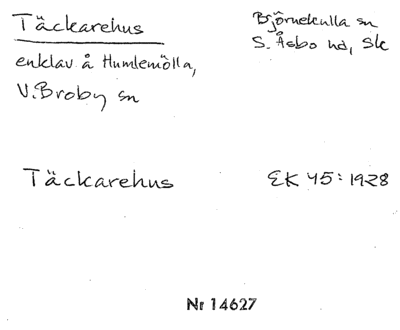 Täckarehus
Björnekulla sn
S. Åsbo hd, Sk
enklav å Humlemölla,
V. Broby sn
Täckarehus EK 45:1928
Nr 14627